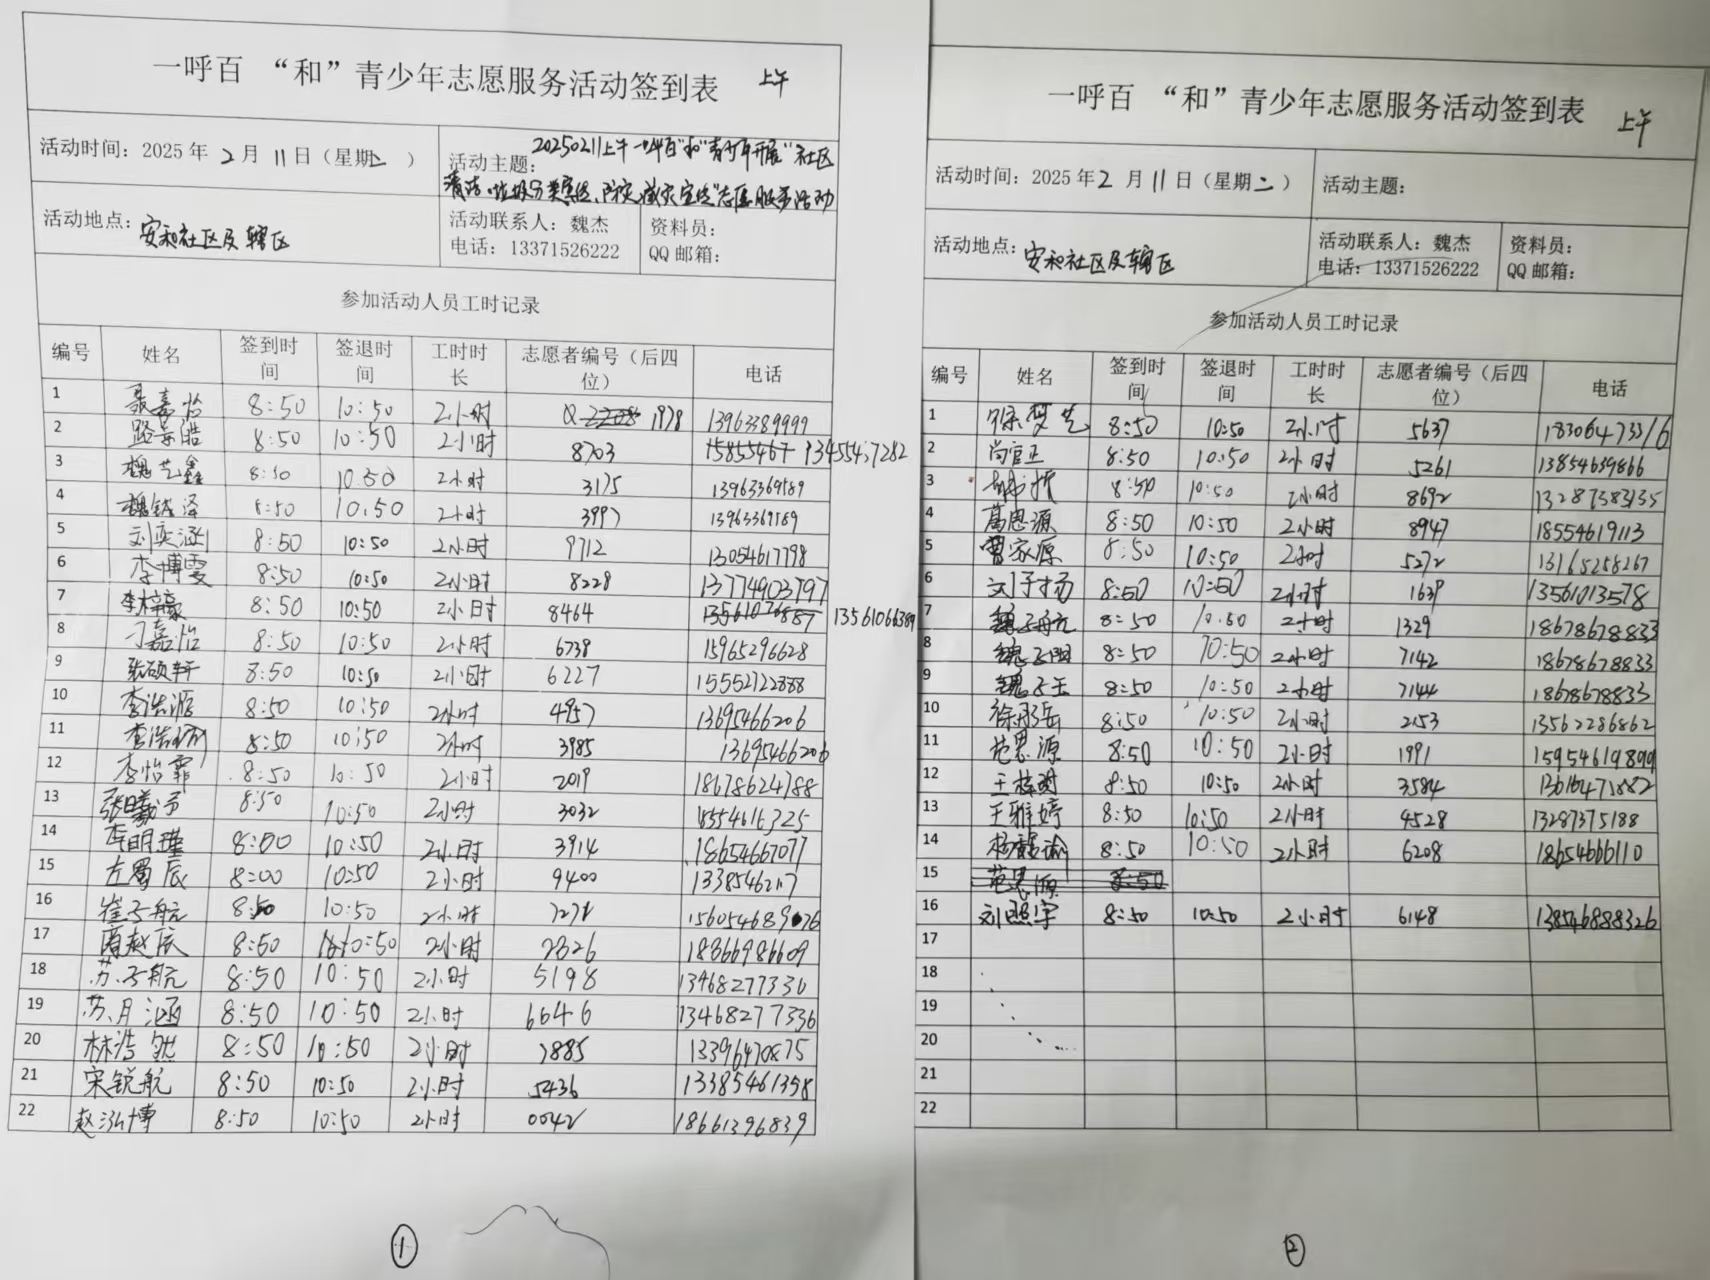 一呼百 “和”青少年志愿服务活动签到表 上午
活动时间：2025 年 2 月 11 日（星期二）
活动主题：20250211上午一呼百"和"青少年开展"社区
清洁、垃圾分类宣传、防灾减灾宣传"志愿服务活动
活动地点：安和社区及辖区
活动联系人：魏杰
电话：13371526222
资料员：
QQ 邮箱：
参加活动人员工时记录
编号 姓名 签到时间 签退时间 工时时长 志愿者编号（后四位） 电话
1 聂嘉怡 8:50 10:50 2小时 1978 13963389999
2 路景皓 8:50 10:50 2小时 8703
3 魏艺鑫 8:50 10:50 2小时 3175 13963369589
4 魏铭泽 8:50 10:50 2小时 3997 13963369589
5 刘奕涵 8:50 10:50 2小时 9712 13054617798
6 李博雯 8:50 10:50 2小时 8228 13774903797
7 李梓豪 8:50 10:50 2小时 8464 13561076887 13561066389
8 刁嘉怡 8:50 10:50 2小时 6738 15965296628
9 张硕轩 8:50 10:50 2小时 6227 15552722888
10 李浩源 8:50 10:50 2小时 4957 13695466206
11 8:50 10:50 2小时 3985 13695466206
12 李怡霏 8:50 10:50 2小时 2019 18678624788
13 张曦予 8:50 10:50 2小时 3032 18554616325
14 李明瑾 8:00 10:50 2小时 3914 18654667077
15 左蜀辰 8:00 10:50 2小时 9400
16 崔子航 8:50 10:50 2小时
17 周赵辰 8:50 10:50 2小时 2326 18366986609
18 苏子航 8:50 10:50 2小时 5198 13468277336
19 苏月涵 8:50 10:50 2小时 6646 13468277336
20 林浩然 8:50 10:50 2小时 7885 13396470875
21 宋锐航 8:50 10:50 2小时 5436 13385461358
22 赵泓博 8:50 10:50 2小时 0042 18661396839
①
一呼百 “和”青少年志愿服务活动签到表 上午
活动时间：2025 年 2 月 11 日（星期二）
活动主题：
活动地点：安和社区及辖区
活动联系人：魏杰
电话：13371526222
资料员：
QQ 邮箱：
参加活动人员工时记录
编号 姓名 签到时间 签退时间 工时时长 志愿者编号（后四位） 电话
1 徐梦艺 8:50 10:50 2小时 5637 18306473316
2 尚官正 8:50 10:50 2小时 5261 13854639866
3 8:50 10:50 2小时 8692 13287383135
4 葛恩源 8:50 10:50 2小时 8947 18554619113
5 曹家源 8:50 10:50 2小时 5272 13165258267
6 刘子扬 8:50 10:50 2小时 1639 13561013578
7 魏子航 8:50 10:50 2小时 1329 18678678833
8 魏子阳 8:50 10:50 2小时 7142 18678678833
9 魏子玉 8:50 10:50 2小时 7144 18678678833
10 徐彤岳 8:50 10:50 2小时 2153 13562286862
11 范恩源 8:50 10:50 2小时 1991 15954619899
12 8:50 10:50 2小时 3584
13 王雅婷 8:50 10:50 2小时 4528 13287375188
14 8:50 10:50 2小时 6208 18654666110
15 范恩源 8:50
16 刘照宇 8:50 10:50 2小时 6148 138546888326
17
18
19
20
21
22
②